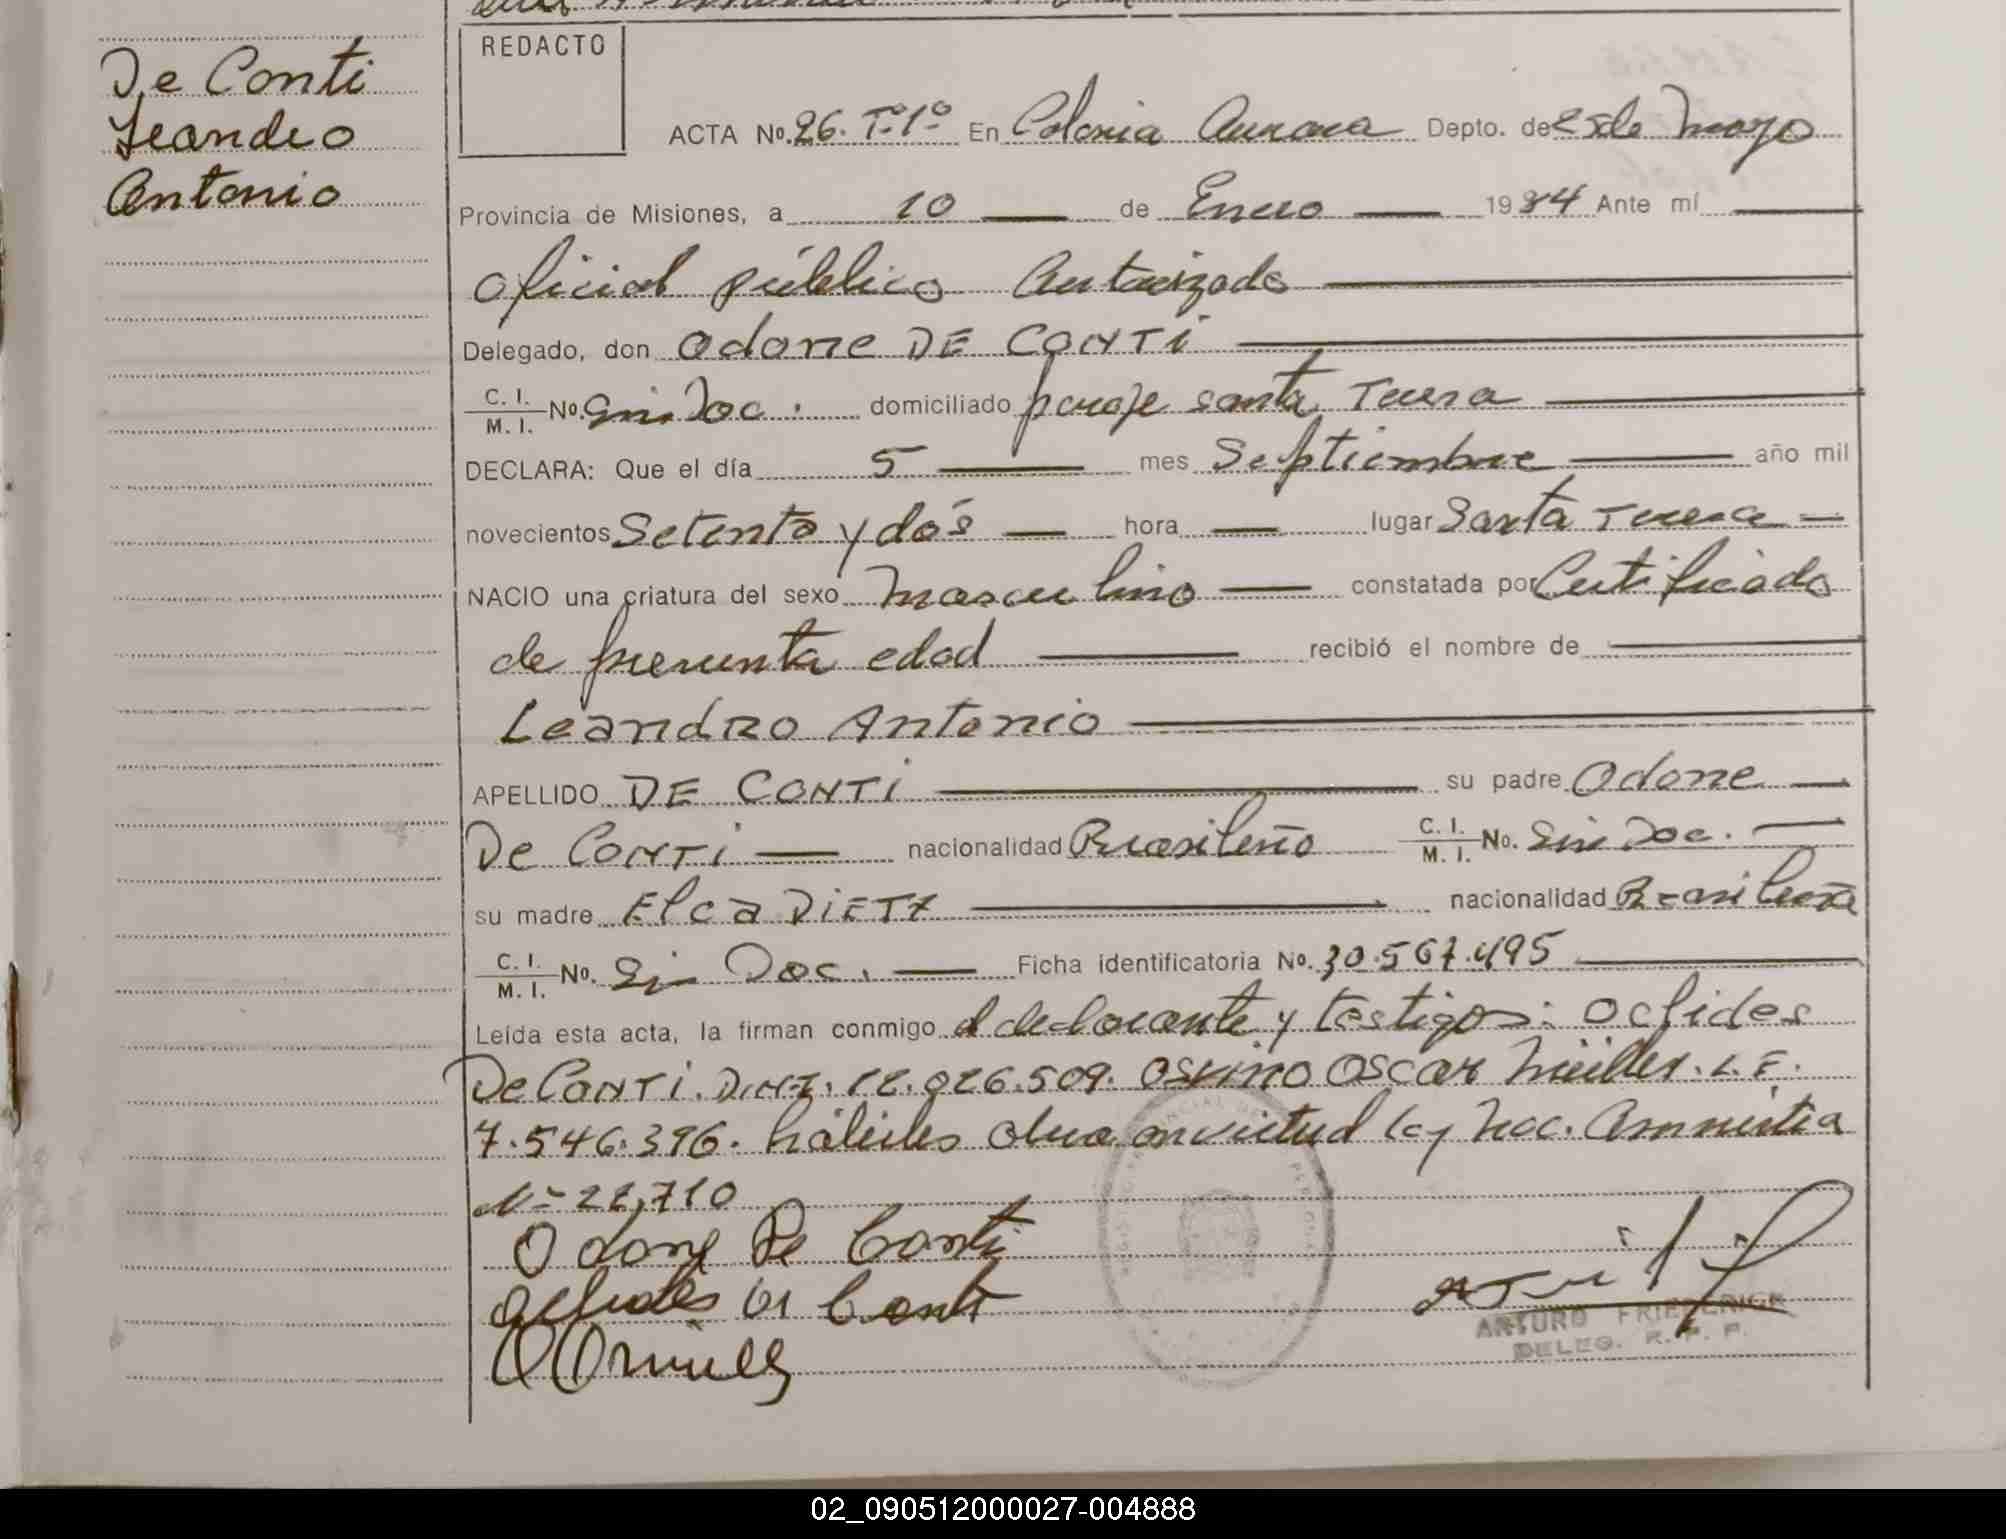 De Conti
Leandro
Antonio
REDACTO
ACTA No. 26. Tº1º En Colonia Aurora Depto. de 25 de Mayo
Provincia de Misiones, a 10 de Enero 1984 Ante mí
Oficial público Autorizado
Delegado, don Odone DE CONTi
C. I. / M. I. No. Sin Doc. domiciliado paraje santa Teresa
DECLARA: Que el día 5 mes Septiembre año mil
novecientos Setenta y dós hora lugar Santa Teresa
NACIO una criatura del sexo masculino constatada por Certificado
de presunta edad recibió el nombre de
Leandro Antonio
APELLIDO DE CONTi su padre Odone
De CONTi nacionalidad Brasileño C. I. / M. I. No. Sin Doc.
su madre Elca DiETZ nacionalidad Brasileña
C. I. / M. I. No. Sin Doc. Ficha identificatoria No. 30.567.495
Leída esta acta, la firman conmigo el declarante y testigos: Oclides
De CONTi. D.N.I. 12.026.509. Oscar Müller. L.E.
7.546.396. hábiles Obra en virtud ley Nac. Amnistia
Nº 22,710
Odone De Conti
De Conti
ARTURO FRIEDERICH
DELEG. R. P. P.
02_090512000027-004888